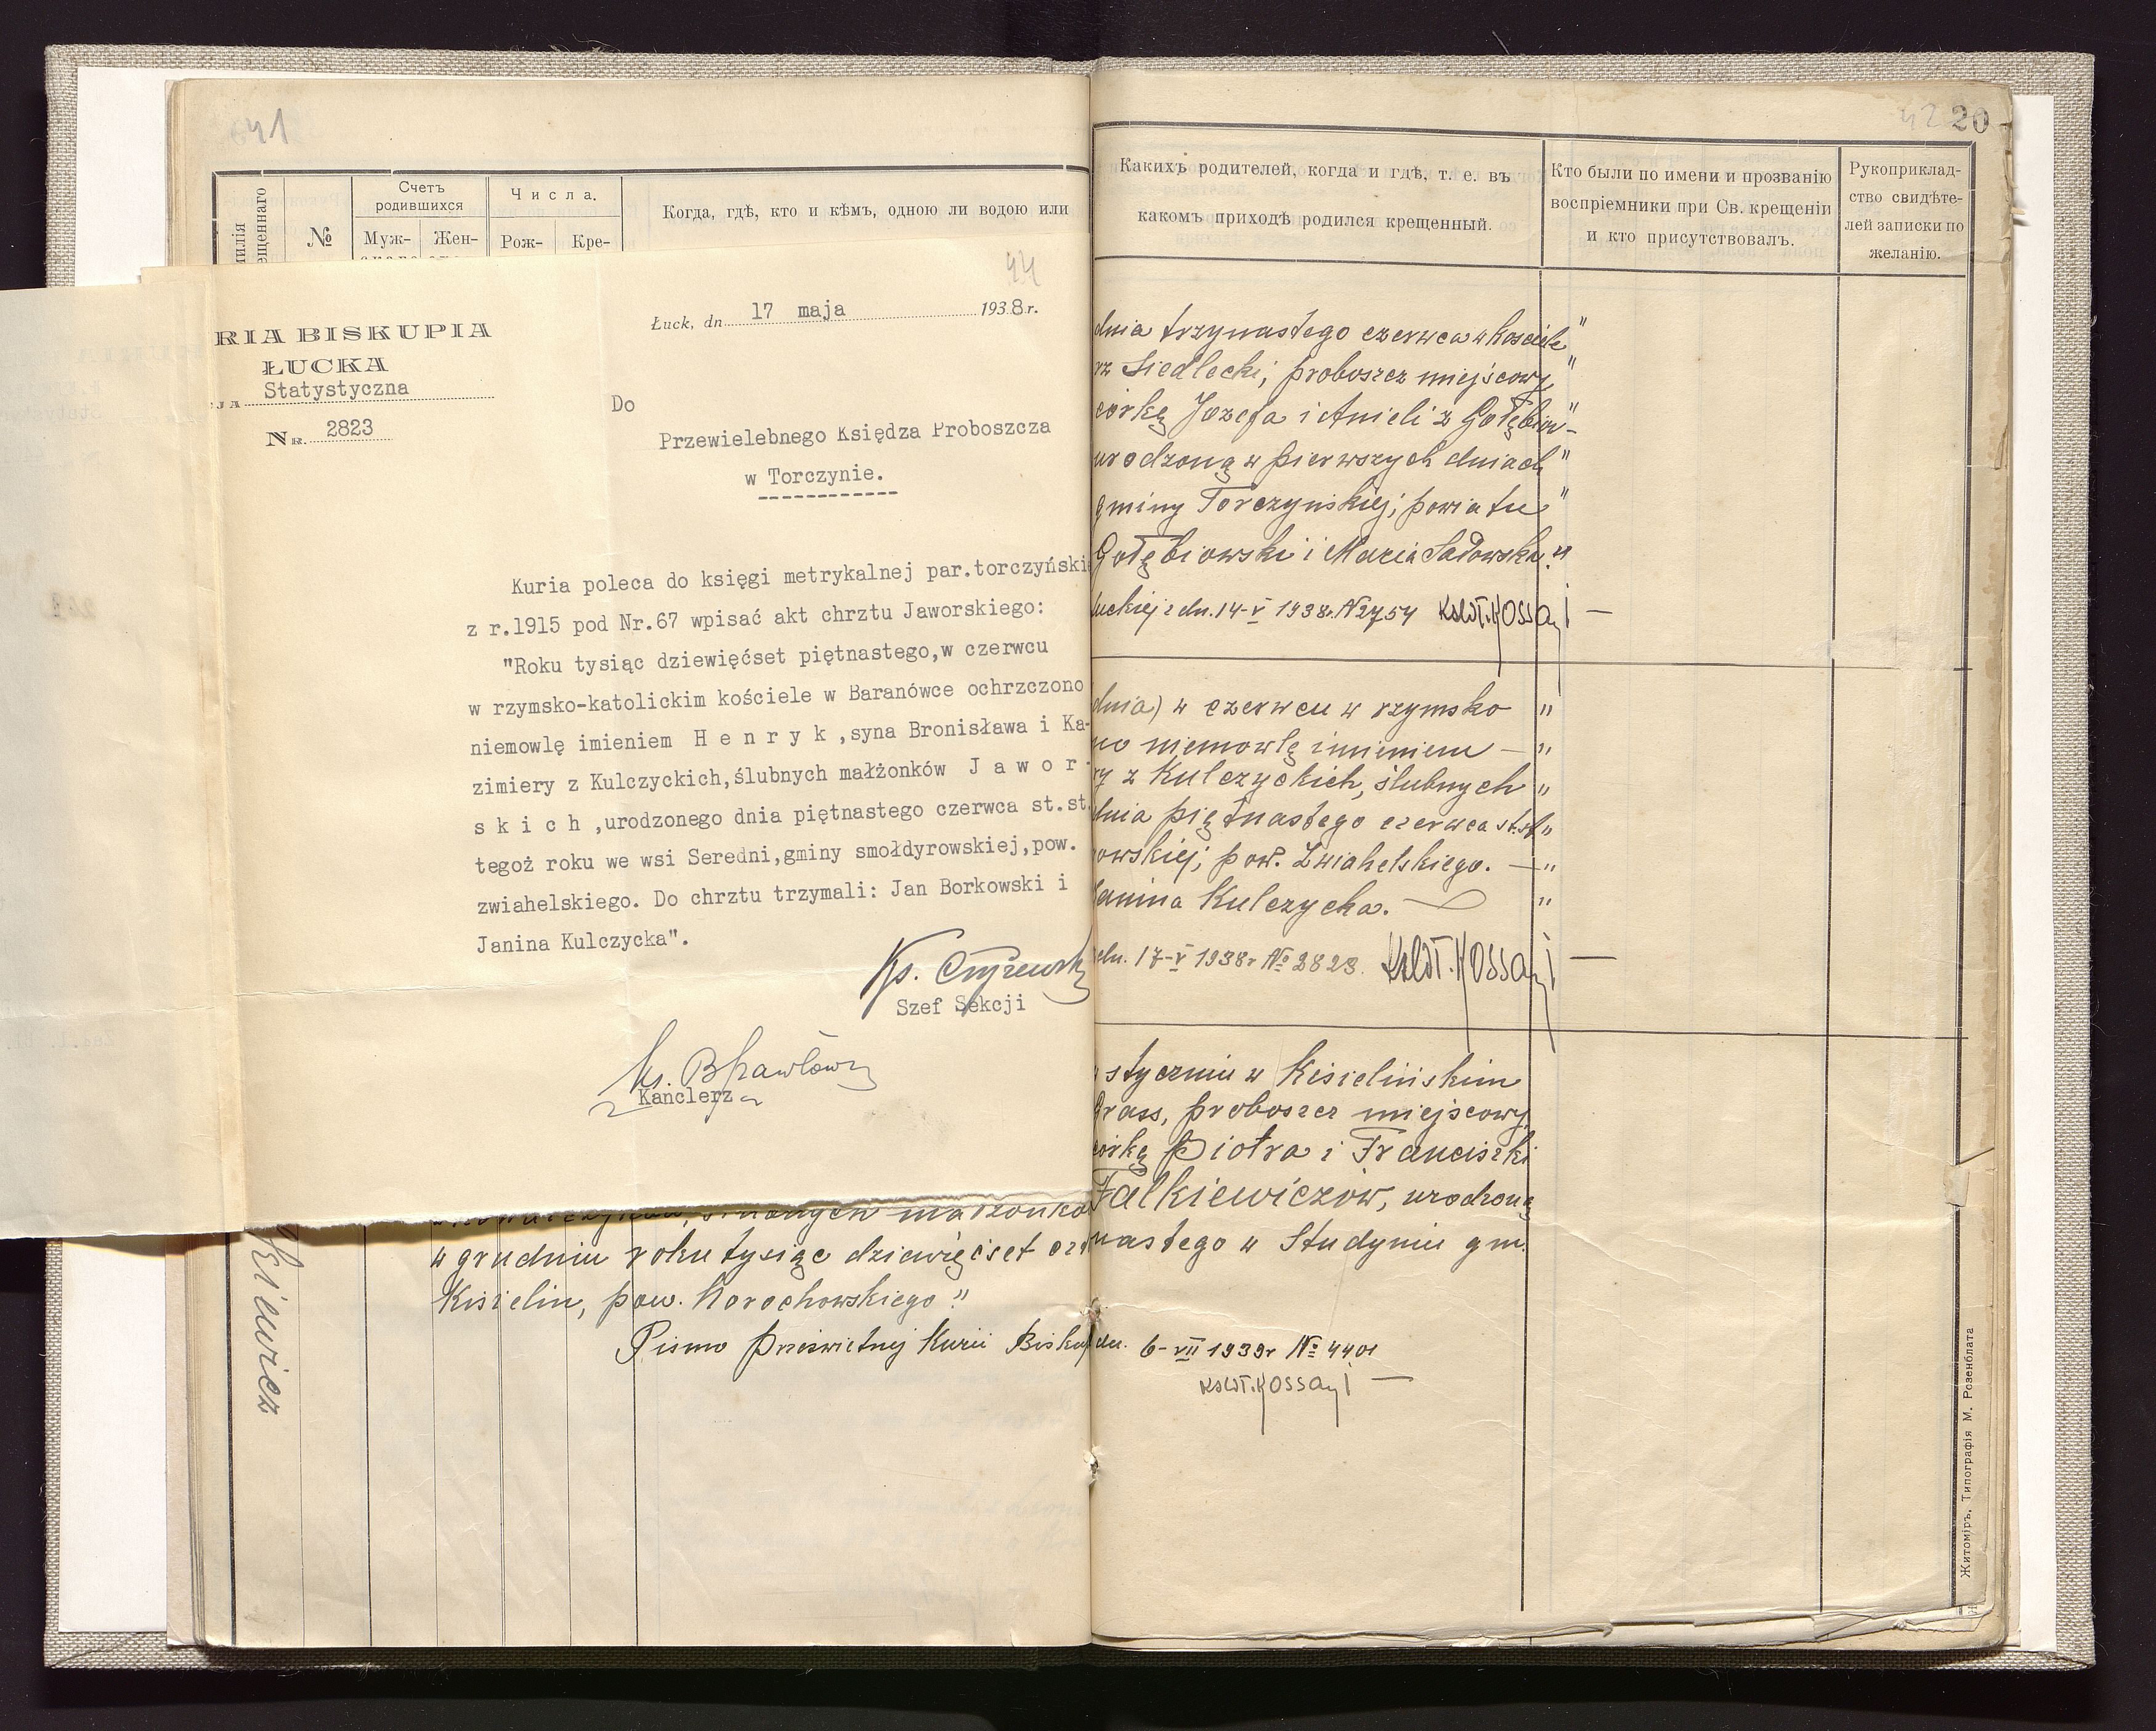 41
Счетъ
родившихся
Числа.
№
Муж-
Жен-
Рож-
Кре-
Когда, гдѣ, кто и кѣмъ, одною ли водою или
44
RIA BISKUPIA
ŁUCKA
JA Statystyczna
NR. 2823
Łuck, dn. 17 maja 1938 r.
Do
Przewielebnego Księdza Proboszcza
w Torczynie.
Kuria poleca do księgi metrykalnej par.torczyńskie
z r.1915 pod Nr.67 wpisać akt chrztu Jaworskiego:
"Roku tysiąc dziewięćset piętnastego,w czerwcu
w rzymsko-katolickim kościele w Baranówce ochrzczono
niemowlę imieniem H e n r y k ,syna Bronisława i Ka-
zimiery z Kulczyckich,ślubnych małżonków J a w o r -
s k i c h ,urodzonego dnia piętnastego czerwca st.st.
tegoż roku we wsi Seredni,gminy smołdyrowskiej,pow.
zwiahelskiego. Do chrztu trzymali: Jan Borkowski i
Janina Kulczycka".
Ks.
Szef Sekcji
Ks.
Kanclerz
małżonkó
w grudniu roku tysiąc dziewięćset czt
Kisielin, pow. Horochowskiego."
Pismo Prześwietnej Kurii Biskup
kiewicz
42 20
Какихъ родителей, когда и гдѣ, т. е. въ
какомъ приходѣ родился крещенный.
Кто были по имени и прозванію
воспріемники при Св. крещеніи
и кто присутствовалъ.
Рукоприклад-
ство свидѣте-
лей записки по
желанію.
dnia trzynastego czerwca w kościele "
rz Siedlecki, proboszcz miejscowy, "
córkę Józefa i Anieli z Gołębiow- "
urodzoną w pierwszych dniach "
gminy Torczyńskiej, powiatu "
Gołębiowski i Maria Sadowska." "
Łuckiej z dn. 14-V 1938r. N2754 KsWT.Kossaj —
dnia) w czerwcu w rzymsko "
no niemowlę imieniem — "
ry z Kulczyckich, ślubnych "
dnia piętnastego czerwca st.st "
owskiej, pow. Zwiahelskiego. — "
Janina Kulczycka. "
dn. 17-V 1938r № 2823.
w styczniu w Kisielińskim
Grass, proboszcz miejscowy,
córkę Piotra i Franciszki
Falkiewiczów, urodzoną
nastego w Studyniu gm.
dn. 6-VII 1939r № 4401
Житоміръ, Типографія М. Розенблата